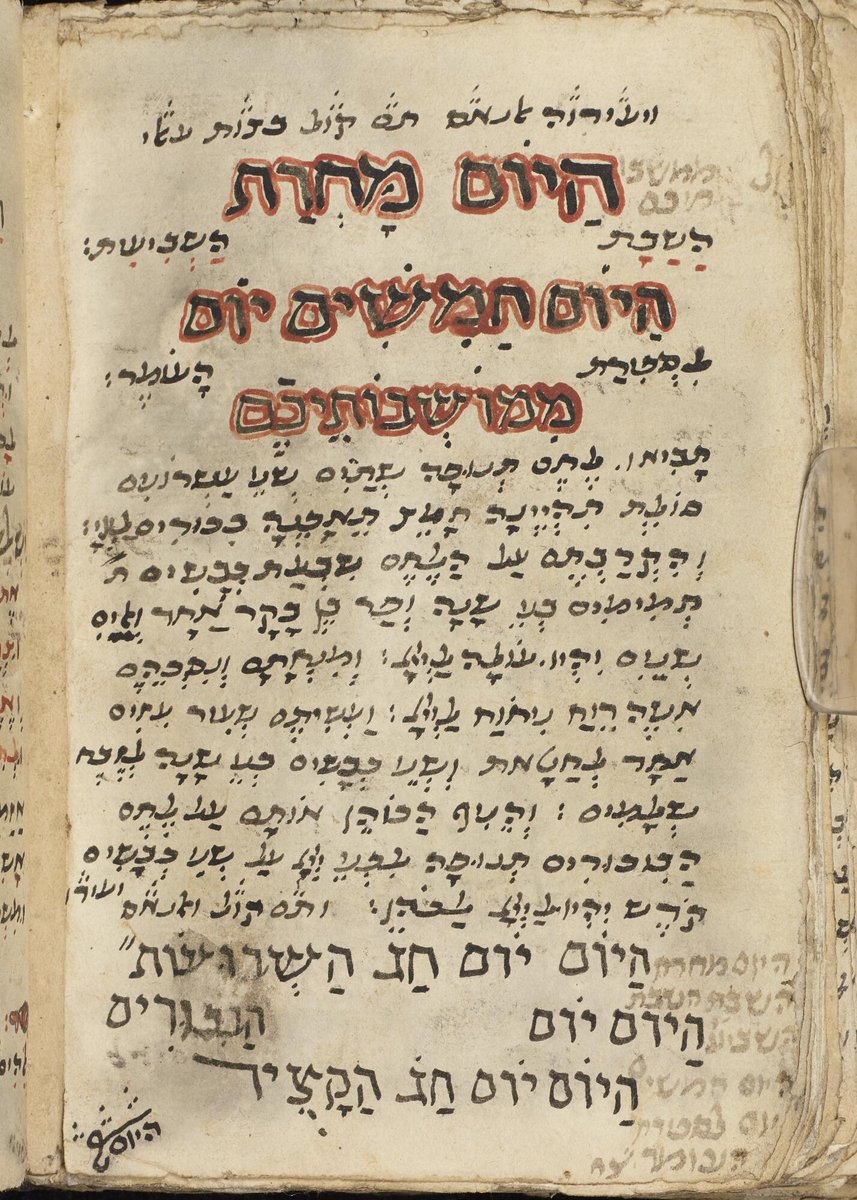 הַיוֹם מָּחֳרַת
הַשַבָּת הַשְבִיעִת:
הַיוֹם חֲמִשִׁים יוֹם
לִסְפִירַת הָעוֹמֶר:
מִמוֹשְׁבוֹתֵיכֶם
תָבִיאוּ לֶחֶם תְנוּפָה שְתַיִם שְנֵי עֶשְרוֹנִים
סוֹלֶת תִהְיֶינָה חָמֵץ תֵאָפֶינָה בִכּוּרִים לַיְיָ:
וְהִקְרַבְתֶם עַל הַלֶחֶם שִבְעַת כְבָשִים
תְמִימִים בְנֵי שָנָה וְפַר בֶן בָקָר אֶחָד וְאֵילִם
שְנַיִם יִהְיוּ עוֹלָה לַיְיָ: וּמִנְחָתָם וְנִסְכֵיהֶם
אִשֵה רֵיחַ נִיחוֹחַ לַיְיָ: וַעֲשִיתֶם שְעִיר עִזִים
אֶחָד לְחַטָאת וּשְנֵי כְבָשִים בְנֵי שָנָה לְזֶבַח
שְלָמִים: וְהֵנִיף הַכּוֹהֵן אוֹתָם עַל לֶחֶם
הַבִכּוּרִים תְנוּפָה לִפְנֵי יְיָ עַל שְנֵי כְבָשִים
קֹדֶש יִהְיוּ לַיְיָ לַכּהֵן:
הַיוֹם יוֹם חַג הַשְבוּעוֹת
הַיוֹם יוֹם הַבִכּוּרִים
הַיוֹם יוֹם חַג הַקָצִיר
היום
היום מחרת
השבת
היום חמשים
יום לספירת
העומר